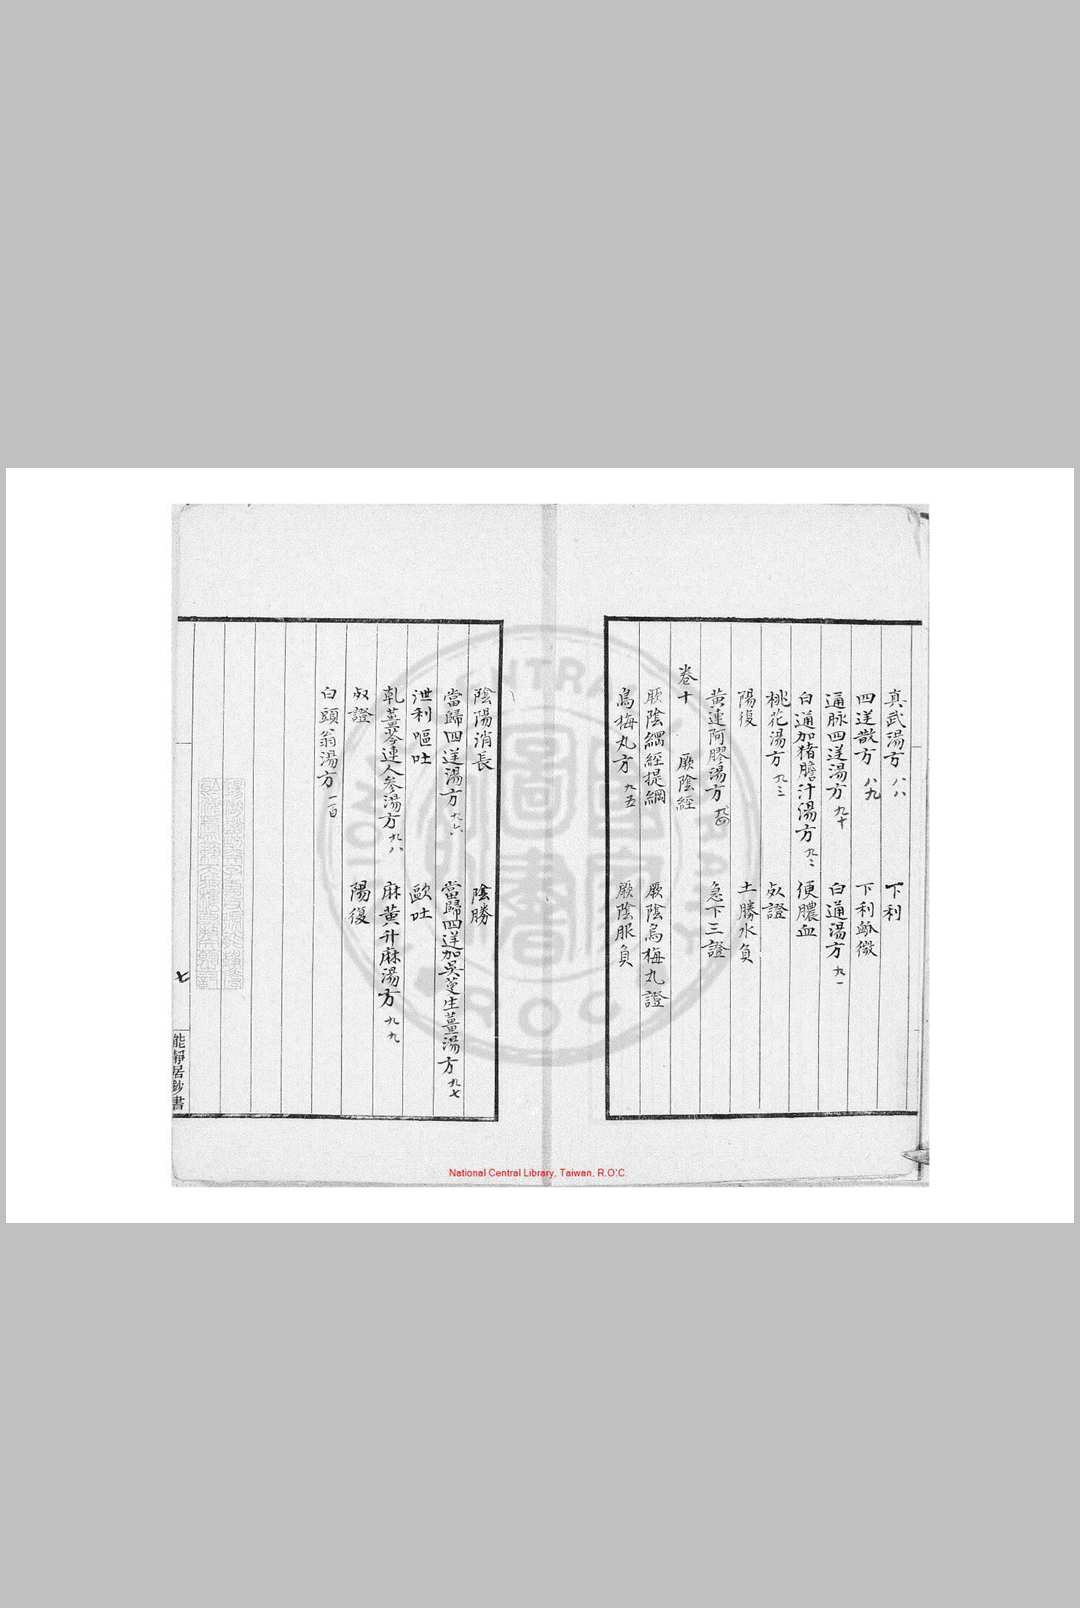 真武湯方 八八 下利
四逆散方 八九 下利脈微
通脉四逆湯方 九十 白通湯方 九一
白通加猪膽汁湯方 九二 便膿血
桃花湯方 九三 死證
陽復 土勝水負
黃連阿膠湯方 九四 急下三證
卷十 厥陰經
厥陰綱經提綱 厥陰烏梅丸證
烏梅丸方 九五 厥陰脈負
陰陽消長 陰勝
當歸四逆湯方 九六 當歸四逆加吳茰生薑湯方 九七
泄利嘔吐 歐吐
乾薑苓連人參湯方 九八 麻黃升麻湯方 九九
死證 陽復
白頭翁湯方 一百
七
能靜居鈔書
National Central Library, Taiwan, R.O.C.